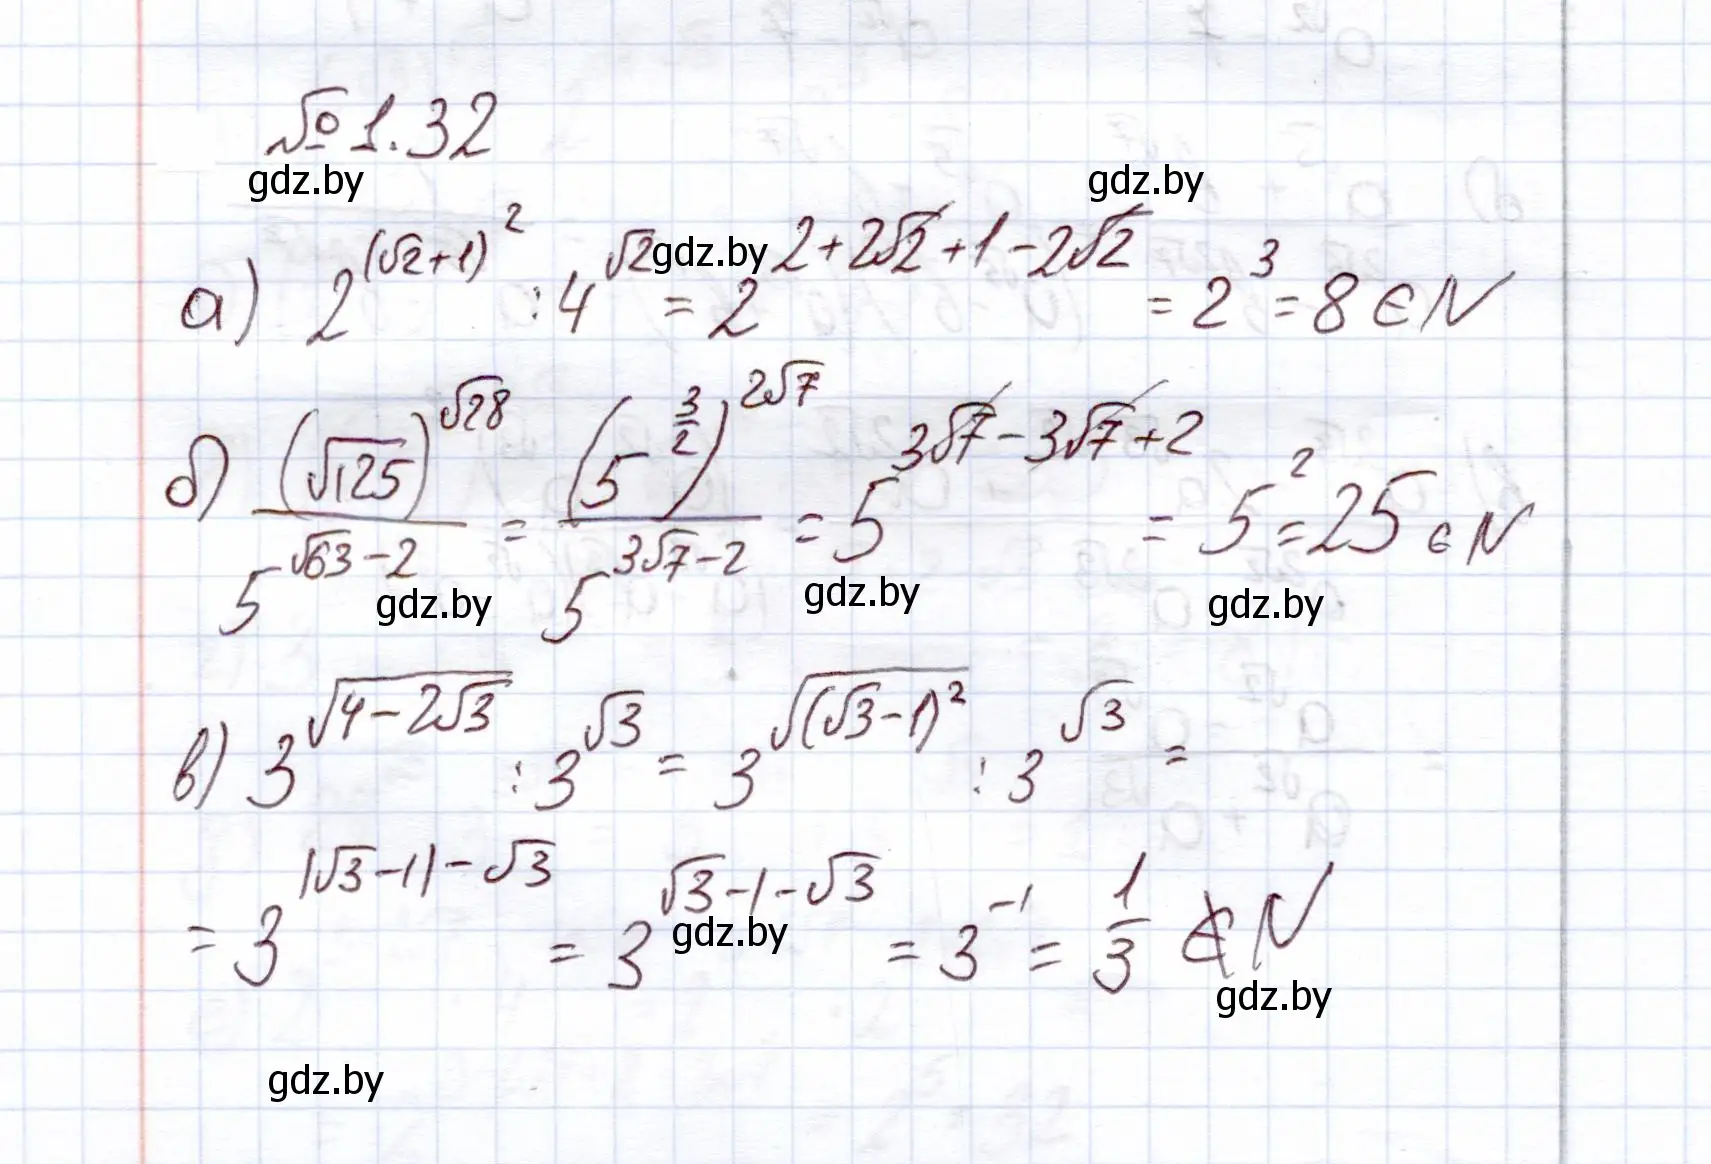 № 1.32
gdz.by gdz.by
а) 2^{(√2+1)^2} : 4^{√2} = 2^{2+2√2+1-2√2} = 2^3 = 8 ∈ N
gdz.by
б) (√125)^{√28} / 5^{√63-2} = (5^{3/2})^{2√7} / 5^{3√7-2} = 5^{3√7-3√7+2} = 5^2 = 25 ∈ N
gdz.by gdz.by gdz.by
в) 3^{√(4-2√3)} : 3^{√3} = 3^{√((√3-1)^2)} : 3^{√3} =
= 3^{|√3-1|-√3} = 3^{√3-1-√3} = 3^{-1} = 1/3 ∉ N
gdz.by gdz.by
gdz.by